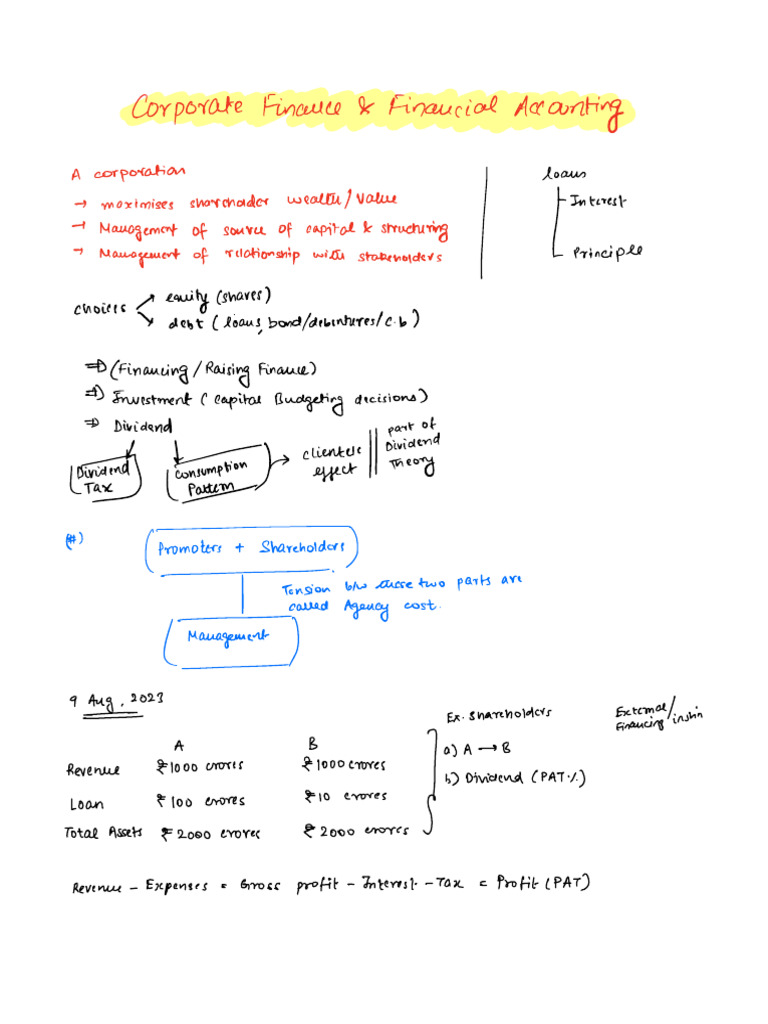 Corporate Finance & Financial Accounting
A corporation
→ maximises shareholder wealth/value
→ Management of source of capital & structuring
→ Management of relationship with stakeholders
loans
Interest
Principle
choices
equity (shares)
debt (loans, bond/debentures/c.b)
⇒ (Financing / Raising Finance)
⇒ Investment (Capital Budgeting decisions)
⇒ Dividend
Dividend Tax
Consumption Pattern
→ clientele effect
part of Dividend Theory
(#)
Promoters + Shareholders
Tension b/w these two parts are
called Agency cost.
Management
9 Aug, 2023
A B
Revenue ₹1000 crores ₹1000 crores
Loan ₹100 crores ₹10 crores
Total Assets ₹2000 crores ₹2000 crores
Ex. Shareholders
a) A → B
b) Dividend (PAT%)
External/
Financing
Revenue - Expenses = Gross profit - Interest - Tax = Profit (PAT)